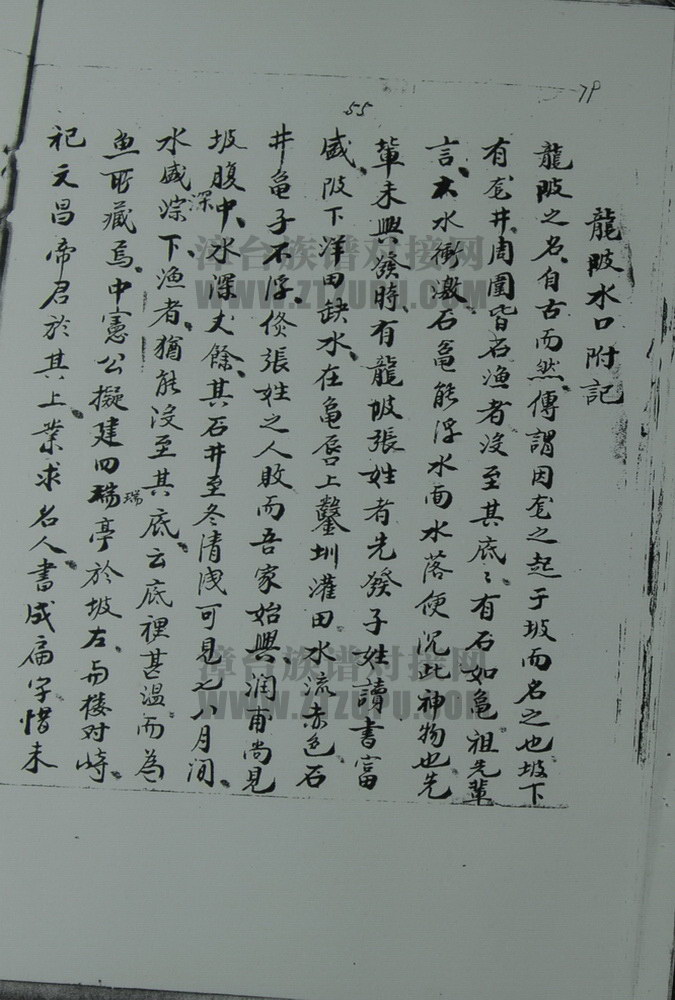 79
55
龍陂水口附記
龍陂之名自古而然傳謂因龙之起于坡而名之也坡下
有龙井周圍皆石漁者沒至其底〻有石如亀祖先輩
言大水衝激石亀能浮水面水落便沉此神物也先
輩未興發時有龍坡張姓者先發子姓讀書富
盛陂下洋田缺水在亀唇上鑿圳灌田水流赤色石
井亀子不浮倐張姓之人敗而吾家始興润甫尚見
坡腹中水深丈餘其石井至冬清浅可見七八月间
水盛深下漁者猶能沒至其底云底裡甚溫而為
深
魚所藏焉中憲公擬建四瑞亭於坡左与楼对峙
瑞
祀文昌帝君於其上業求名人書成扁字惜未
漳台族谱对接网
WWW.ZTZUPU.COM
漳台族谱对接网
WWW.ZTZUPU.COM